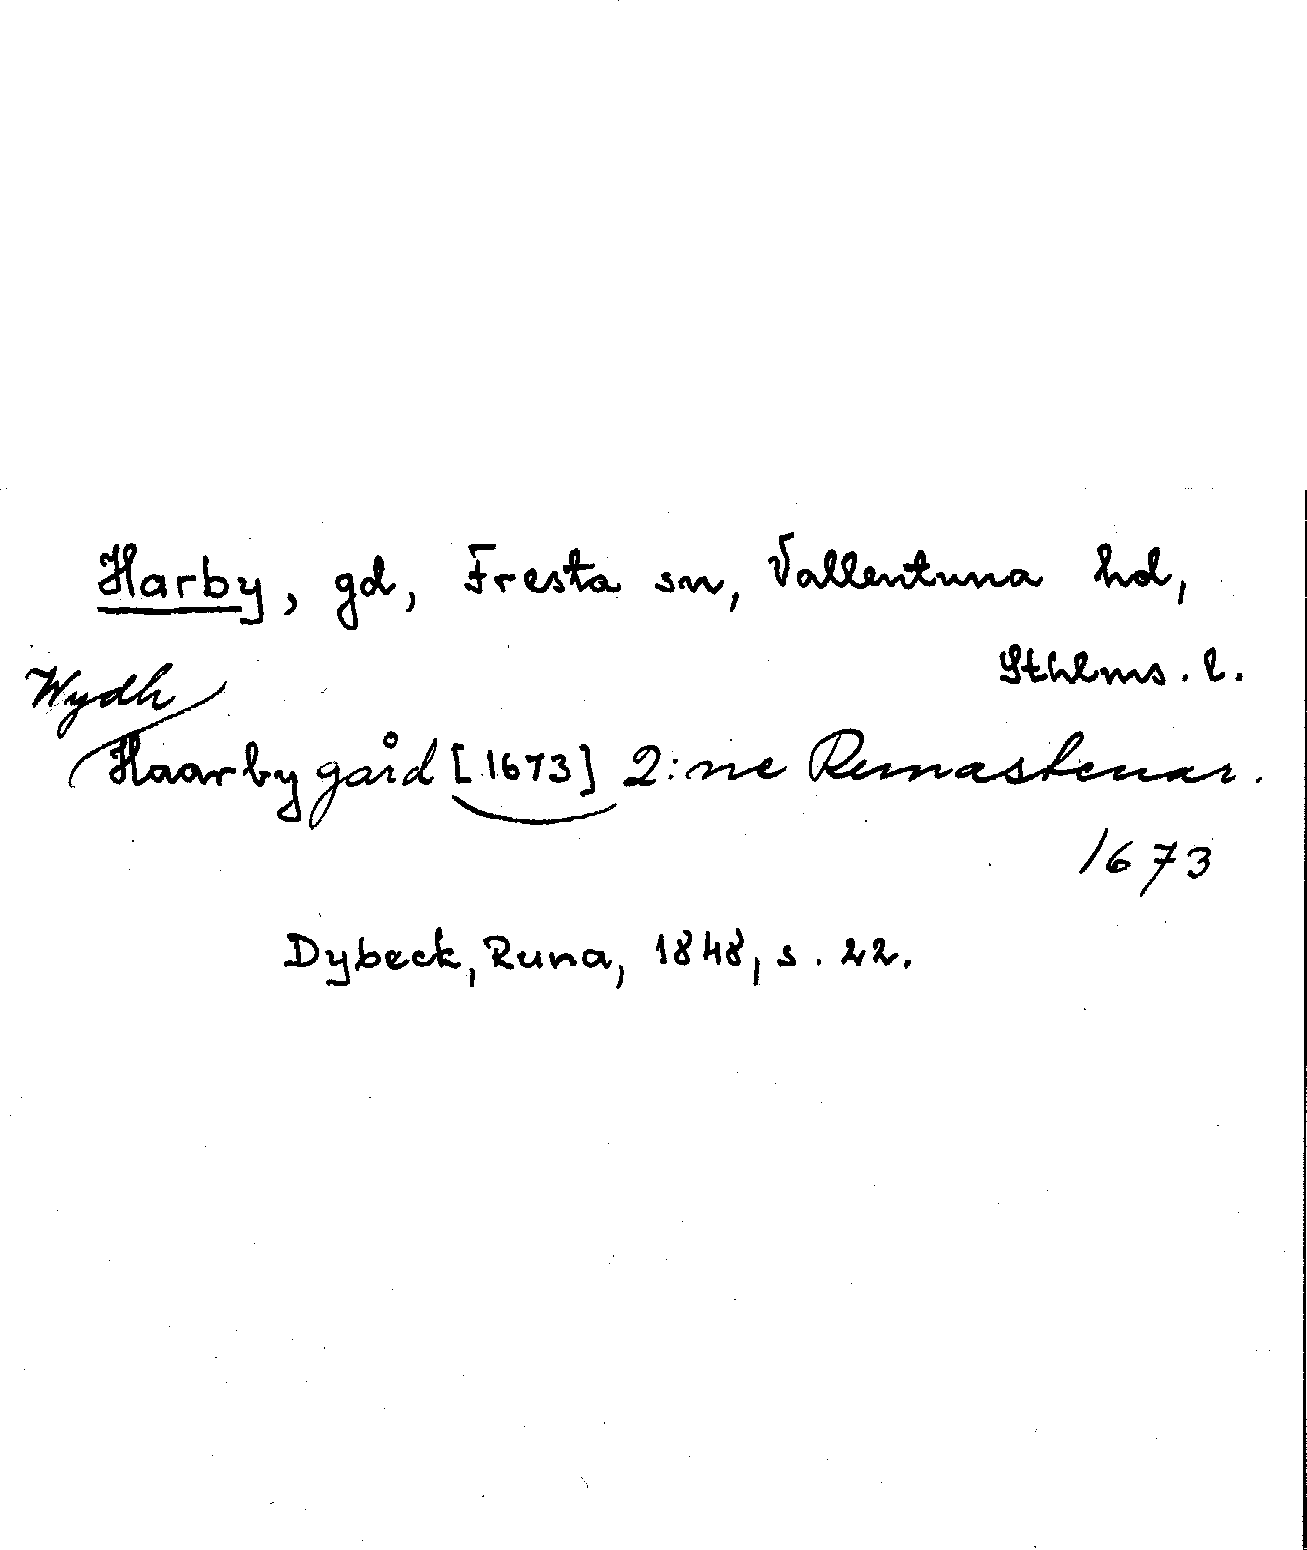 Harby, gd, Fresta sn, Vallentuna hd,
Sthlms. l.
Wydh
Haarby gård [1673] 2:ne Runastenar.
1673
Dybeck, Runa, 1848, s. 22.